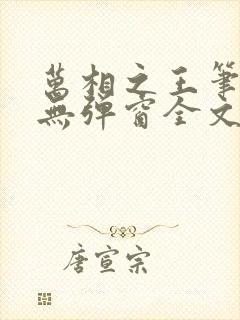 萬相之王筆
無彈窗全文
唐宣宗